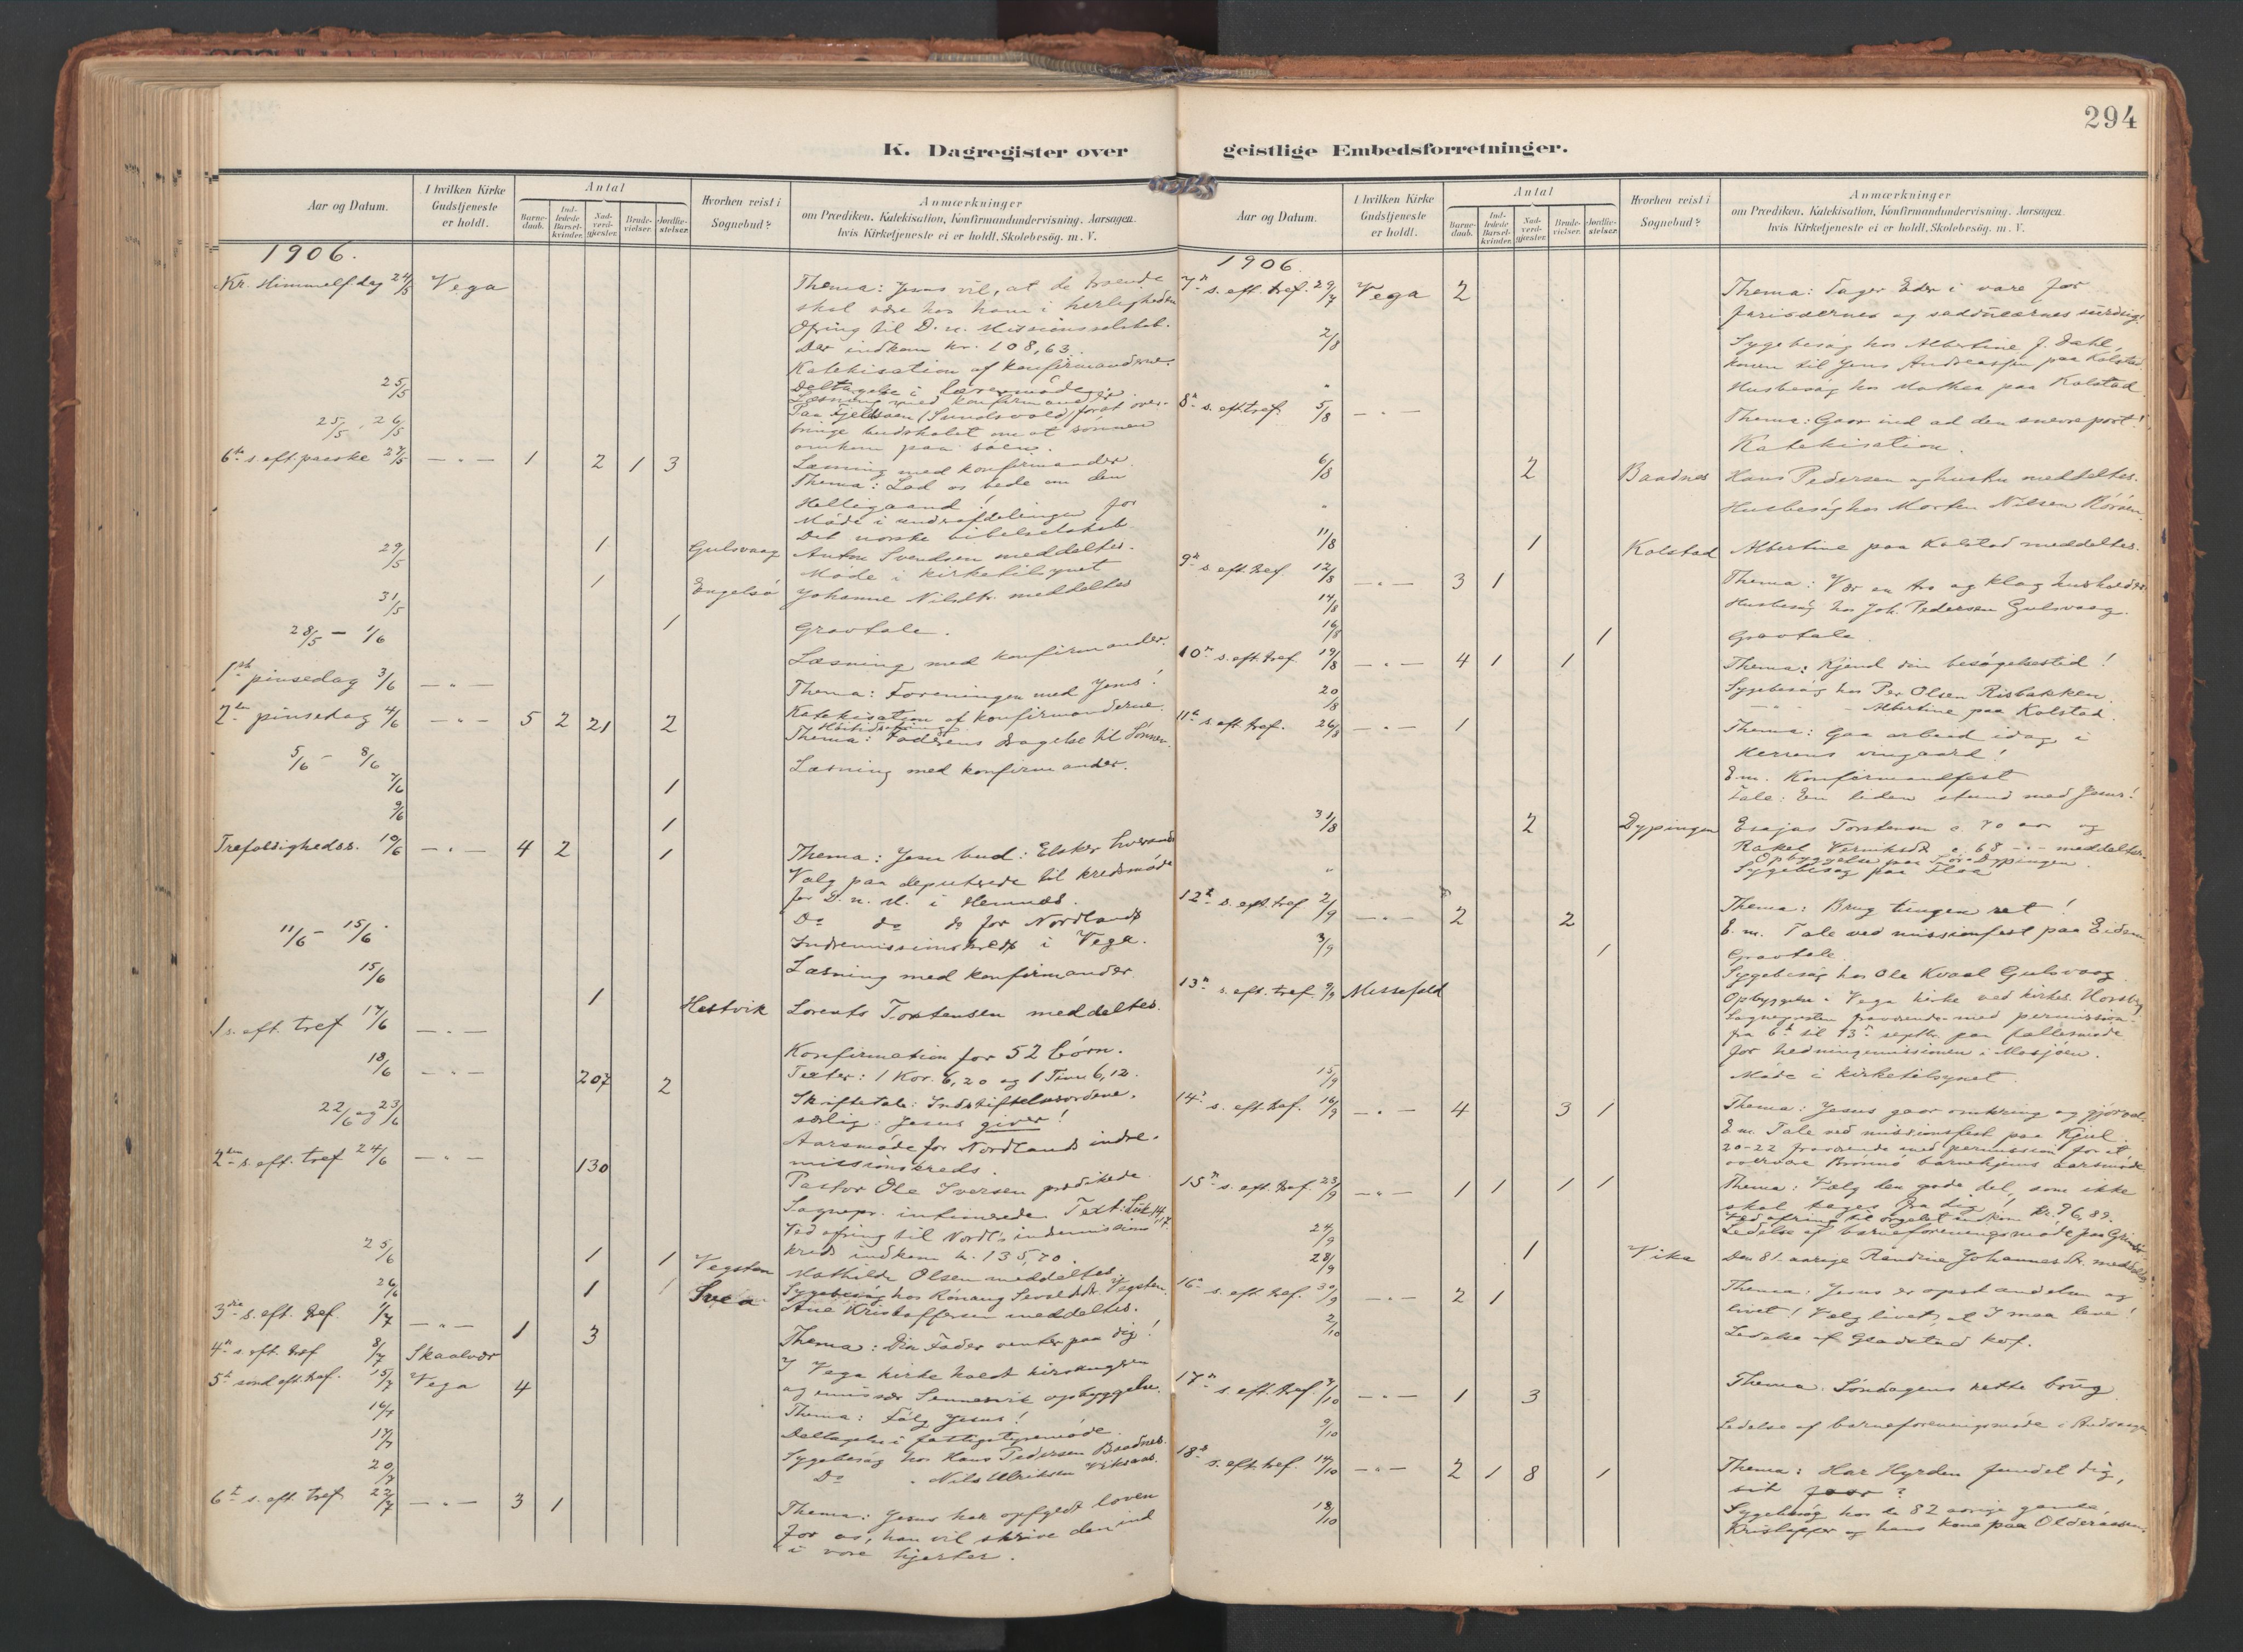 294
K. Dagregister over
Aar og Datum.
I hvilken Kirke Gudstjeneste er holdt.
Antal
Barnedaab.
Indledede Barselkvinder.
Nadverdgjester.
Brudevielser.
Jordfæstelser.
Hvorhen reist i Sognebud?
Anmærkninger
om Prædiken, Katekisation, Konfirmandundervisning, Aarsagen,
hvis Kirketjeneste ei er holdt, Skolebesøg, m. V.
1906.
Kr. Himmelf.dag 24/5 Vega Thema: Jesus vil, at de troende
skal være hos ham i herligheden
Ofring til D. n. Missionsselskab.
Der indkom kr. 108,63.
Katekisation af konfirmanderne.
25/5 Deltagelse i
Læsning med konfirmander.
25/5 . 26/5 Paa (Sundsvold) for at over-
bringe budskabet om at sønnen
omkom paa søen.
6te s. eft. paaske 27/5 — " — 1 2 1 3 Læsning med konfirmander.
Thema: Lad os bede om den
Helligaand!
Møde i for
Det norske bibelselskab.
29/5 1 Gulsvaag Anton Svendsen meddeltes.
Møde i kirketilsynet
31/5 1 Engelsø Johanne Nilsdtr. meddeltes
28/5 – 1/6 1 Gravtale.
Læsning med konfirmander.
1ste pinsedag 3/6 — " — Thema: Foreningen med Jesus!
Katekisation af konfirmanderne.
2den pinsedag 4/6 — " — 5 2 21 2
Thema: Faderens dragelse til Sønnen.
5/6 – 8/6 Læsning med konfirmander.
7/6 1
9/6 1
Trefoldighedss. 10/6 — " — 4 2 1 Thema: Jesu bud: Elsker hverandre
Valg paa deputerede til kredsmøde
for D. n. M. i Hemnes.
Do do do for Nordlands
Indremissionskreds i Vega.
11/6 – 15/6 Læsning med konfirmander
15/6 1 Hestvik Lorents Torstensen meddeltes.
1 s. eft. tref 17/6 — " — Konfirmation for 52 børn.
Texter: 1 Kor. 6,20 og 1 Tim 6,12.
18/6 — " — 207 2 Skriftetale: Indstiftelsesordene,
særlig: Jesus giver!
22/6 og 23/6 Aarsmøde for Nordlands indre-
missionskreds.
2den s. eft. tref 24/6 — " — 130 Pastor Ole Iversen prædikede.
Sognepr. intimerede. Text: Luk 14,17.
Ved ofring til Nordl's indremissions
kreds indkom kr. 135,70.
25/6 1 1 Vegsten Mathilde Olsen meddeltes.
Sygebesøg hos Rønnaug Vegsten.
26/6 1 1 Svea Ane Kristoffersen meddeltes.
3die s. eft. tref. 1/7 — " — 1 3 Thema: Din Fader venter paa dig!
4de s. eft. tref 8/7 Skaalvær I Vega kirke holdt kirkesangeren
og emissær Sennesvik opbyggelse.
5te sønd. eft. tref. 15/7 Vega 4 Thema: Følg Jesus!
16/7 Deltagelse i fattigstyremøde.
17/7 Sygebesøg hos Hans Pedersen Baadnes.
20/7 Do " Nils Ulriksen Viksaas.
6te s. eft. tref. 22/7 — " — 3 1 Thema: Jesus har opfyldt loven
for os, han vil skrive den ind
i vore hjerter.
geistlige Embedsforretninger.
Aar og Datum.
I hvilken Kirke Gudstjeneste er holdt.
Antal
Barnedaab.
Indledede Barselkvinder.
Nadverdgjester.
Brudevielser.
Jordfæstelser.
Hvorhen reist i Sognebud?
Anmærkninger
om Prædiken, Katekisation, Konfirmandundervisning, Aarsagen,
hvis Kirketjeneste ei er holdt, Skolebesøg, m. V.
1906.
7de s. eft. tref. 29/7 Vega 2 Thema: Tager Eder i vare for
farisæernes og saddukæernes surdeig!
2/8 Sygebesøg hos Albertine J. Dahl,
konen til Jens Andreassen paa Kolstad
" Husbesøg hos Mathea paa Kolstad
8de s. eft. tref. 5/8 — " — Thema: Gaar ind ad den snevre port!
Katekisation.
6/8 2 Baadnes Hans Pedersen og hustru meddeltes.
" Husbesøg hos Morten Nilsen Rørøen.
11/8 1 Kolstad Albertine paa Kolstad meddeltes.
9de s. eft. tref. 12/8 — " — 3 1 Thema: Vær en tro og klog husholder
14/8 Husbesøg hos Joh. Pedersen Gulsvaag.
16/8 1 Gravtale
10de s. eft. tref. 19/8 — " — 4 1 1 Thema: Kjend din besøgelsestid!
20/8 Sygebesøg hos Per Olsen Risbakken.
- " - Albertine paa Kolstad.
11te s. eft. tref. 26/8 — " — 1 Thema: Gaa arbeid idag i
Herrens vingaard!
E.m. Konfirmandfest
Tale: En liden stund med Jesus!
31/8 2 Dypingen Esajas Torstensen c. 70 aar og
Rakel c. 68 - " - meddeltes.
Opbyggelse paa Dypingen.
" Sygebesøg paa Floa
12te s. eft. tref 2/9 — " — 2 2 Thema: Brug tungen ret!
E. m. Tale ved missionsfest paa Eidem
3/9 1 Gravtale.
Sygebesøg hos Ole Kvaal Gulsvaag
13de s. eft. tref. 9/9 Messefald Opbyggelse i Vega kirke ved kirkes.
Sognepresten fraværende med permission
fra 6te til 13de septbr. paa fællesmøde
for hedningemissionen i Mosjøen.
15/9 Møde i kirketilsynet.
14de s. eft. tref. 16/9 — " — 4 3 1 Thema: Jesus gaar omkring og gjør vel.
E. m. Tale ved missionsfest paa Kjul.
20–22 fraværende med permission for at
overvære Brønnø barnehjems aarsmøde
15de s. eft. tref. 23/9 — " — 1 1 1 1 Thema: Vælg den gode del, som ikke
skal tages fra dig!
Ved ofring til orgelet indkom kr. 76,89.
24/9 Ledelse af barneforeningsmøde paa
28/9 1 Vika Den 81-aarige Randine Johannesdtr. meddeltes
16de s. eft. tref. 30/9 — " — 2 1 Thema: Jesus er opstandelsen og
livet! Vælg livet, at I maa leve!
2/10 Ledelse af Gladstad
17de s. eft. tref. 7/10 — " — 1 3 Thema. Søndagens rette brug
9/10 Ledelse af barneforeningsmøde i
18de s. eft. tref. 14/10 — " — 2 1 8 1 Thema: Har Hyrden fundet dig,
sit faar?
18/10 Sygebesøg hos de 82 aarige gamle,
Kristoffer og hans kone paa Olderaasen.